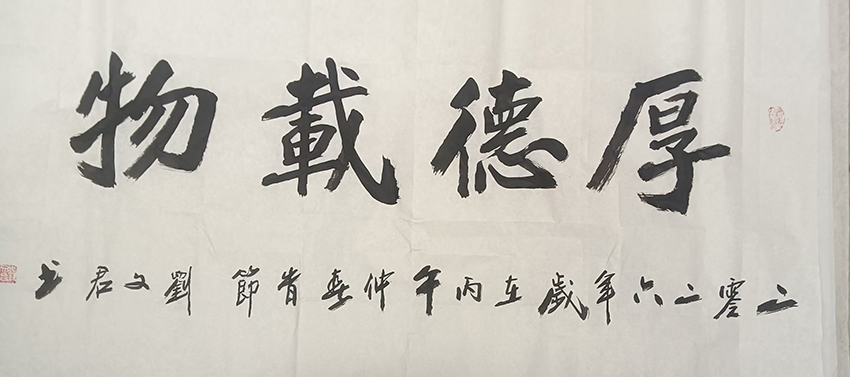 厚德載物
二零二六年歲在丙午仲春肯節劉文君书